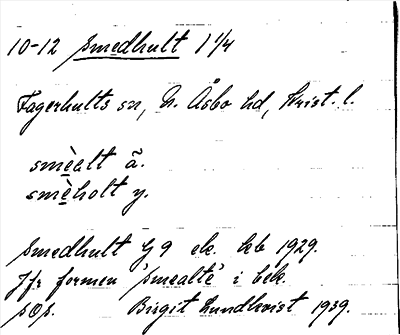 10-12 Smedhult 1 1/4
Fagerhults sn, N. Åsbo hd, Krist. l.
smèalt ã.
smèholt y.
Smedhult G 9 ek. kb 1929.
Jfr formen 'smealte' i bek.
sОs. Birgit Lundkvist 1939.